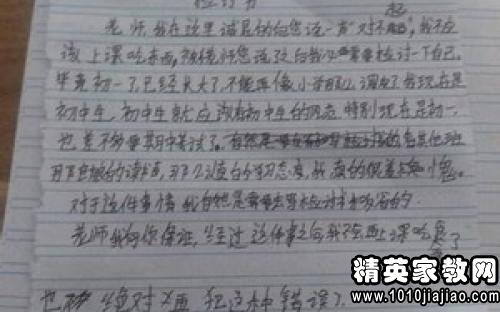 检讨书
老师,我在这里诚恳的向您说一声"对不起",我不应
该上课吃东西,被老师您说了之后我必需要检讨一下自己,
毕竟初一了,已经长大了,不能再像小学那么调皮了我现在是
初中生,初中生就应该有初中生的风范,特别现在是初一,
也差不多要期中考试了。看其他班
的读书声,学习态度,我真的很惭愧。
对于这件事情我自然是需要写检讨书的
老师我向你保证,经过这件事之后我不会再上课吃东西了
也绝对不再犯这种错误了。
精英家教网
www.1010jiajiao.com